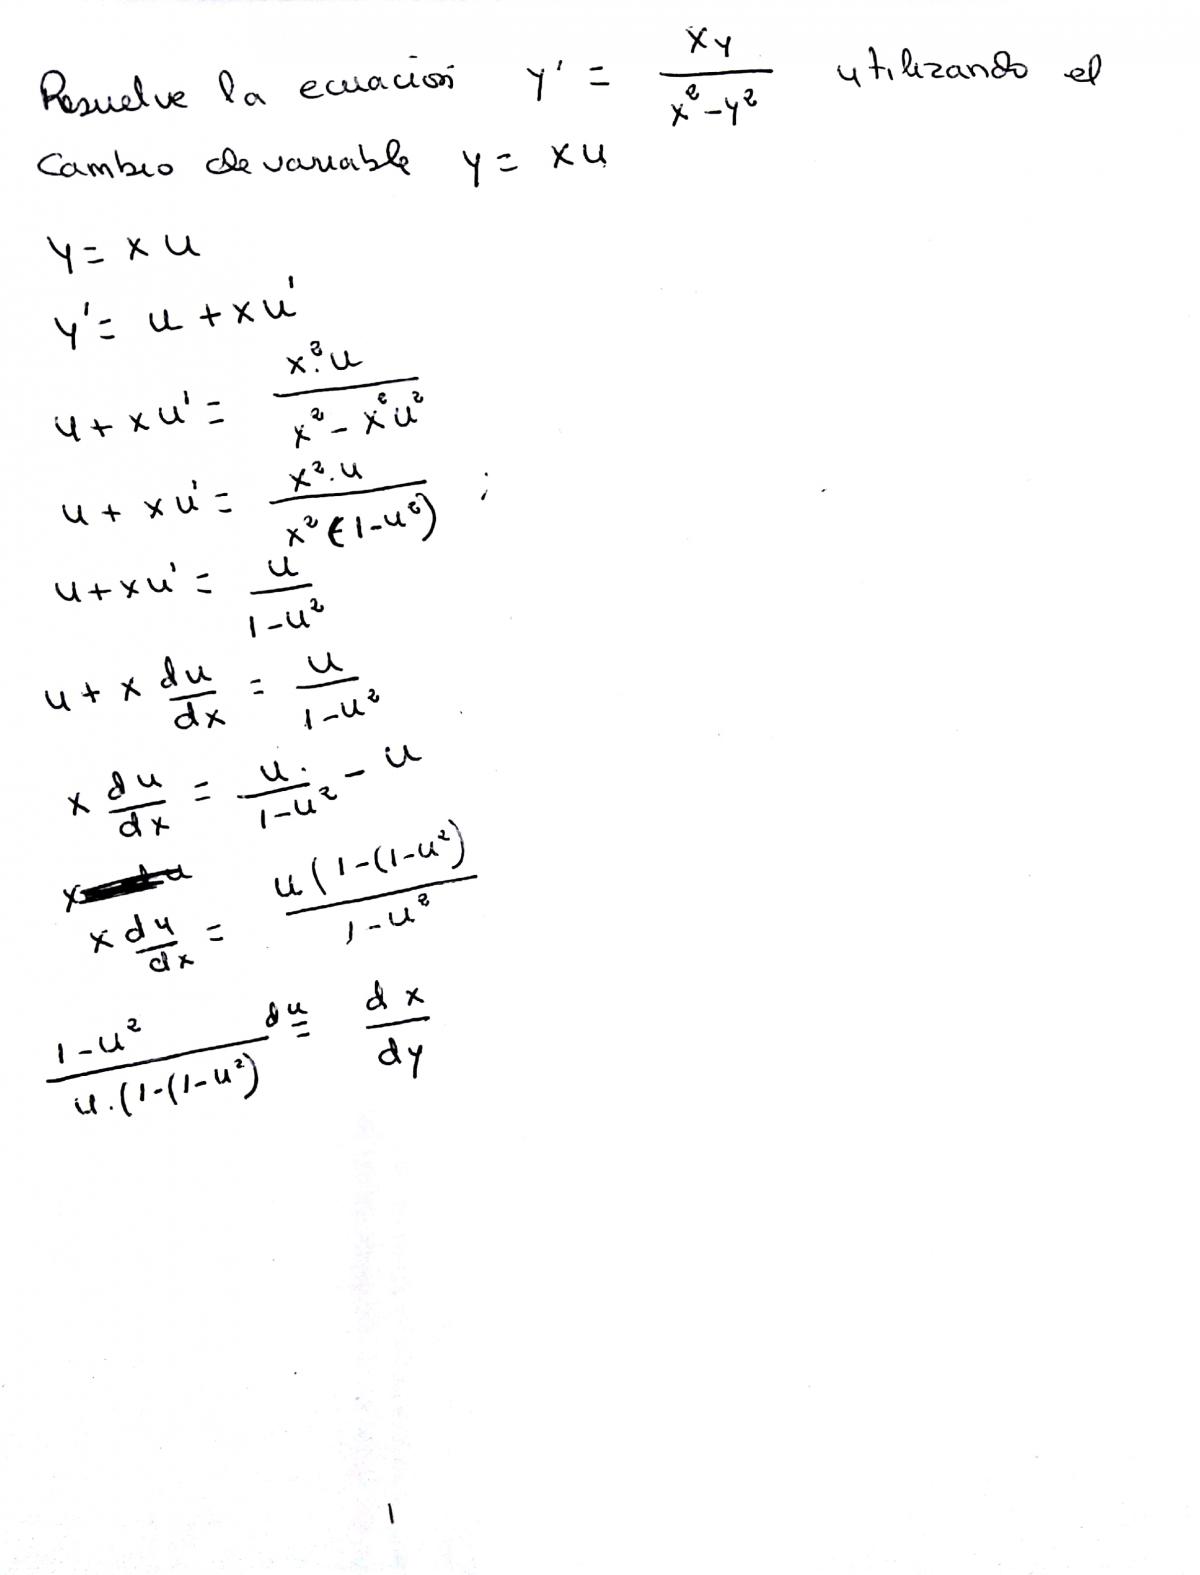 Resuelve la ecuación y' = xy / (x² - y²) utilizando el
Cambio de variable y = xu
y = x u
y' = u + xu'
u + xu' = x²·u / (x² - x²u²)
u + xu' = x²·u / (x² (1-u²)) ;
u + xu' = u / (1-u²)
u + x du/dx = u / (1-u²)
x du/dx = u / (1-u²) - u
x du/dx = u(1-(1-u²) / (1-u²)
(1-u²) / (u·(1-(1-u²)) du = dx/dy
1